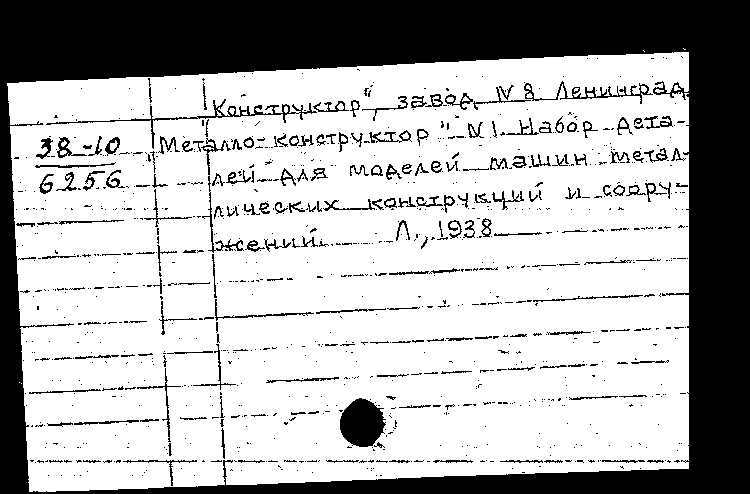 "Конструктор", завод N 8 Ленинград.
38-10
6256
"Металло-конструктор" N 1. Набор дета-
лей для моделей машин метал-
лических конструкций и соору-
жений. Л., 1938